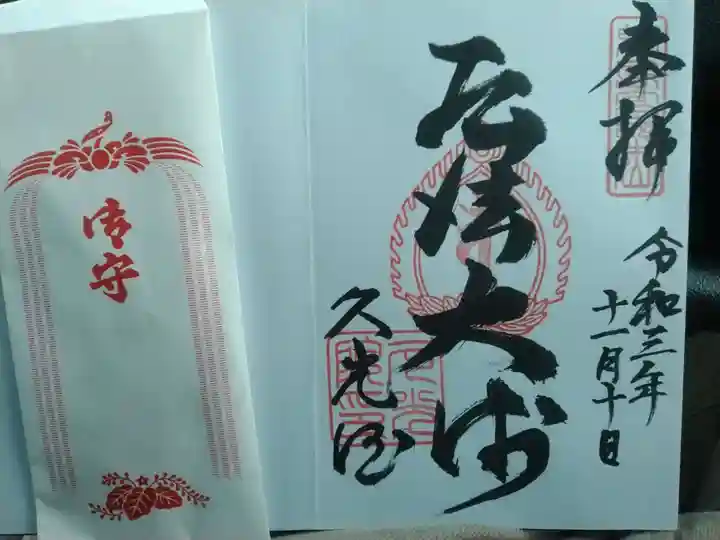 奉拝
令和三年
十一月十日
厄除大師
久光院
御守